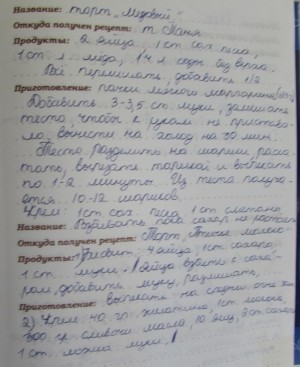 Название: торт „Медовый"
Откуда получен рецепт: т. Таня
Продукты: 2 яйца, 1 ст. сах. песка,
1 ст. л. меда, 1 ч. л. соды без верха.
Всё перемешать, добавить 1/2
Приготовление: пачки мягкого маргарина
Добавить 3-3,5 ст. муки, замешать
тесто, чтобы к рукам не пристава-
ло, вынести на холод на 30 мин.
Тесто разделить на шарики, раска
тать, вырезать тарелкой и выпекать
по 1-2 минуты. Из теста получа-
ется 10-12 шариков.
Крем: 1 ст. сах. песка, 1 ст. сметаны
Название: Взбивать, пока сахар не растает
Откуда получен рецепт: Торт „Птичье молоко"
Продукты: 1) Бисквит: 4 яйца, 1 ст. сахара,
1 ст. муки. Яйца взбить с саха-
ром, добавить муку, размешать,
Приготовление: выпекать на
2) Крем: 40 гр. желатина, 1 ст. молока,
300 гр. сливочн. масла, 10 яиц, 2 ст. сахара
1 ст. ложка муки.